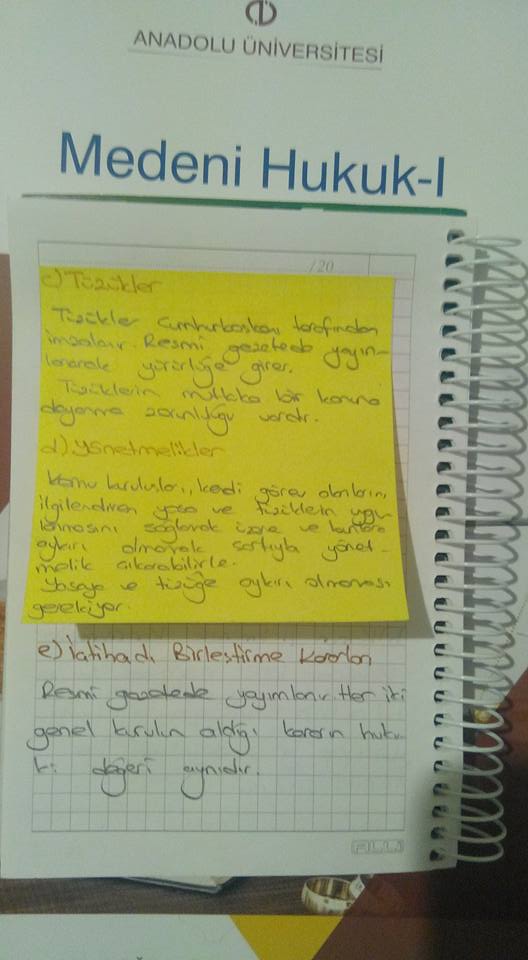 ANADOLU ÜNİVERSİTESİ
Medeni Hukuk-I
/20
c) Tüzükler
Tüzükler Cumhurbaşkanı tarafından
imzalanır. Resmi gazetede yayın-
lanarak yürürlüğe girer.
Tüzüklerin mutlaka bir kanuna
dayanma zorunluluğu vardır.
d) Yönetmelikler
Kamu kuruluşları, kendi görev alanlarını
ilgilendiren yasa ve tüzüklerin uygu-
lanmasını sağlamak üzere ve bunlara
aykırı olmamak şartıyla yönet-
melik çıkarabilirler.
Yasaya ve tüzüğe aykırı olmaması
gerekiyor.
e) İçtihadı Birleştirme Kararları
Resmi gazetede yayımlanır. Her iki
genel kurulun aldığı kararın huku-
ki değeri aynıdır.